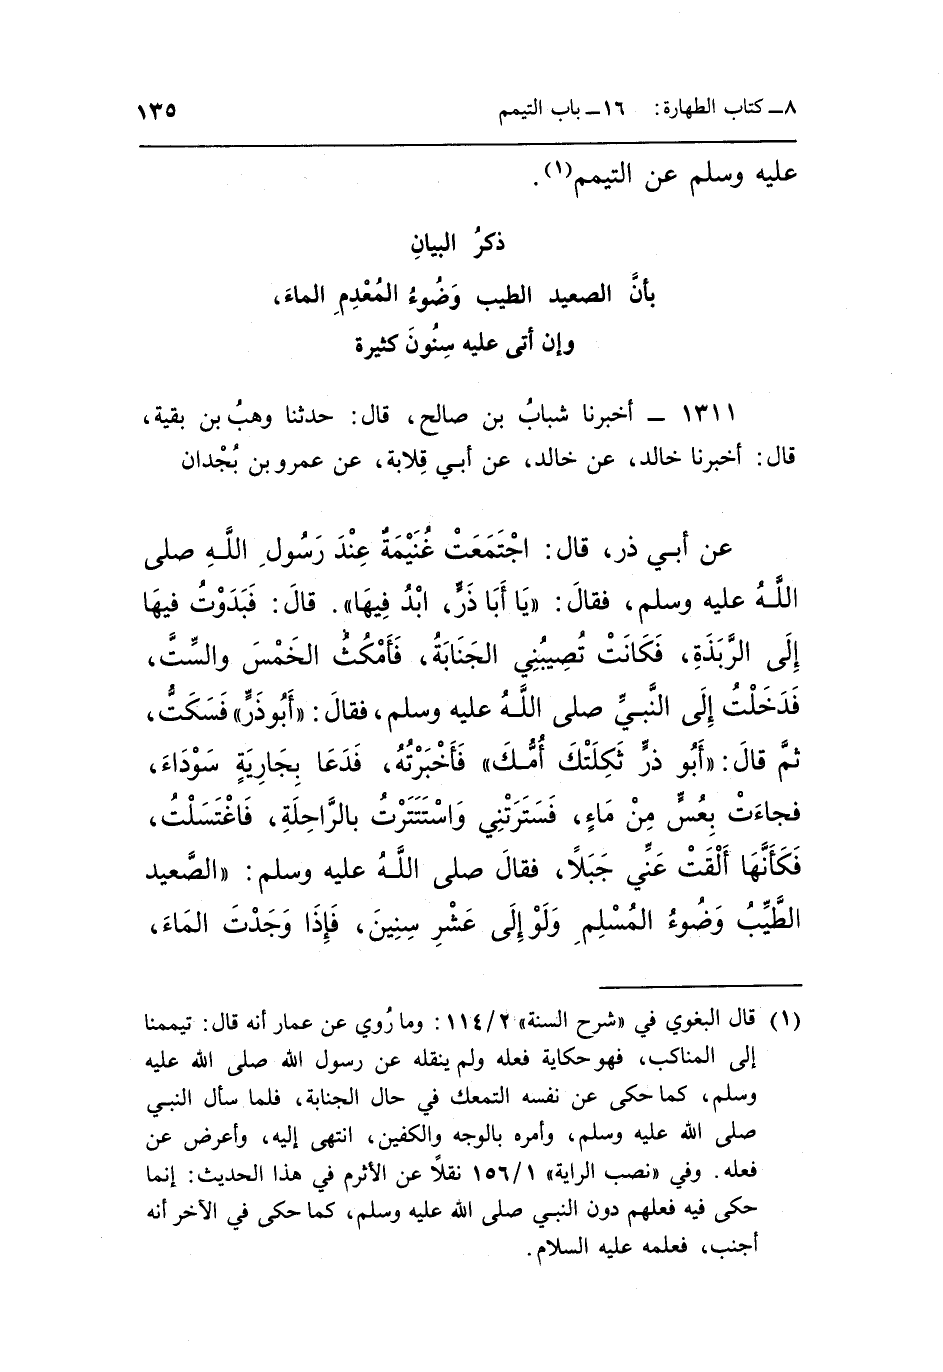 ٨ـ كتاب الطهارة: ١٦ـ باب التيمم ١٣٥
عليه وسلم عن التيمم(١).
ذكرُ البيانِ
بأنَّ الصعيد الطيب وَضُوءُ المُعْدِمِ الماءَ،
وإن أتى عليه سِنُونَ كثيرة
١٣١١ ـ أخبرنا شبابُ بن صالح، قال: حدثنا وهبُ بن بقية،
قال: أخبرنا خالد، عن خالد، عن أبي قِلابة، عن عمرو بن بُجْدان
عن أبي ذر، قال: اجْتَمَعَتْ غُنَيْمَةٌ عِنْدَ رَسُولِ اللَّهِ صلى
اللَّهُ عليه وسلم، فقالَ: «يَا أَبَا ذَرٍّ، ابْدُ فِيهَا». قالَ: فَبَدَوْتُ فيهَا
إِلَى الرَّبَذَةِ، فَكَانَتْ تُصِيبُنِي الجَنَابَةُ، فَأَمْكُثُ الخَمْسَ والسِّتَّ،
فَدَخَلْتُ إِلَى النَّبِيِّ صلى اللَّهُ عليه وسلم، فقالَ: «أَبُو ذَرٍّ» فَسَكَتُّ،
ثمَّ قالَ: «أَبُو ذرٍّ ثَكِلَتْكَ أُمُّكَ» فَأَخْبَرْتُهُ، فَدَعَا بِجَارِيَةٍ سَوْدَاءَ،
فجاءَتْ بِعُسٍّ مِنْ مَاءٍ، فَسَتَرَتْنِي وَاسْتَتَرْتُ بالرَّاحِلَةِ، فَاغْتَسَلْتُ،
فَكَأَنَّهَا أَلْقَتْ عَنِّي جَبَلًا، فقالَ صلى اللَّهُ عليه وسلم: «الصَّعيد
الطَّيِّبُ وَضُوءُ المُسْلِمِ وَلَوْ إِلَى عَشْرِ سِنِينَ، فَإِذَا وَجَدْتَ المَاءَ،
(١) قال البغوي في «شرح السنة» ١١٤/٢: وما رُوي عن عمار أنه قال: تيممنا
إلى المناكب، فهو حكاية فعله ولم ينقله عن رسول الله صلى الله عليه
وسلم، كما حكى عن نفسه التمعك في حال الجنابة، فلما سأل النبي
صلى الله عليه وسلم، وأمره بالوجه والكفين، انتهى إليه، وأعرض عن
فعله. وفي «نصب الراية» ١٥٦/١ نقلًا عن الأثرم في هذا الحديث: إنما
حكى فيه فعلهم دون النبي صلى الله عليه وسلم، كما حكى في الآخر أنه
أجنب، فعلمه عليه السلام.